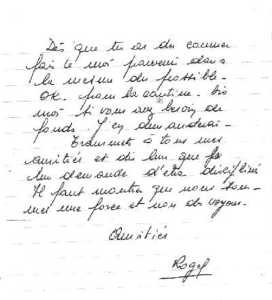 Dès que tu as du concret
fais le moi parvenir dans
la mesure du possible.
OK. pour la caution. Dis
moi si vous avez besoin de
fonds. J'en demanderai.
Transmets à tous mes
amitiés et dis leur que je
leur demande d'être disciplinés
Il faut montrer que nous som-
mes une force et non des voyous.
Amitiés
Roger